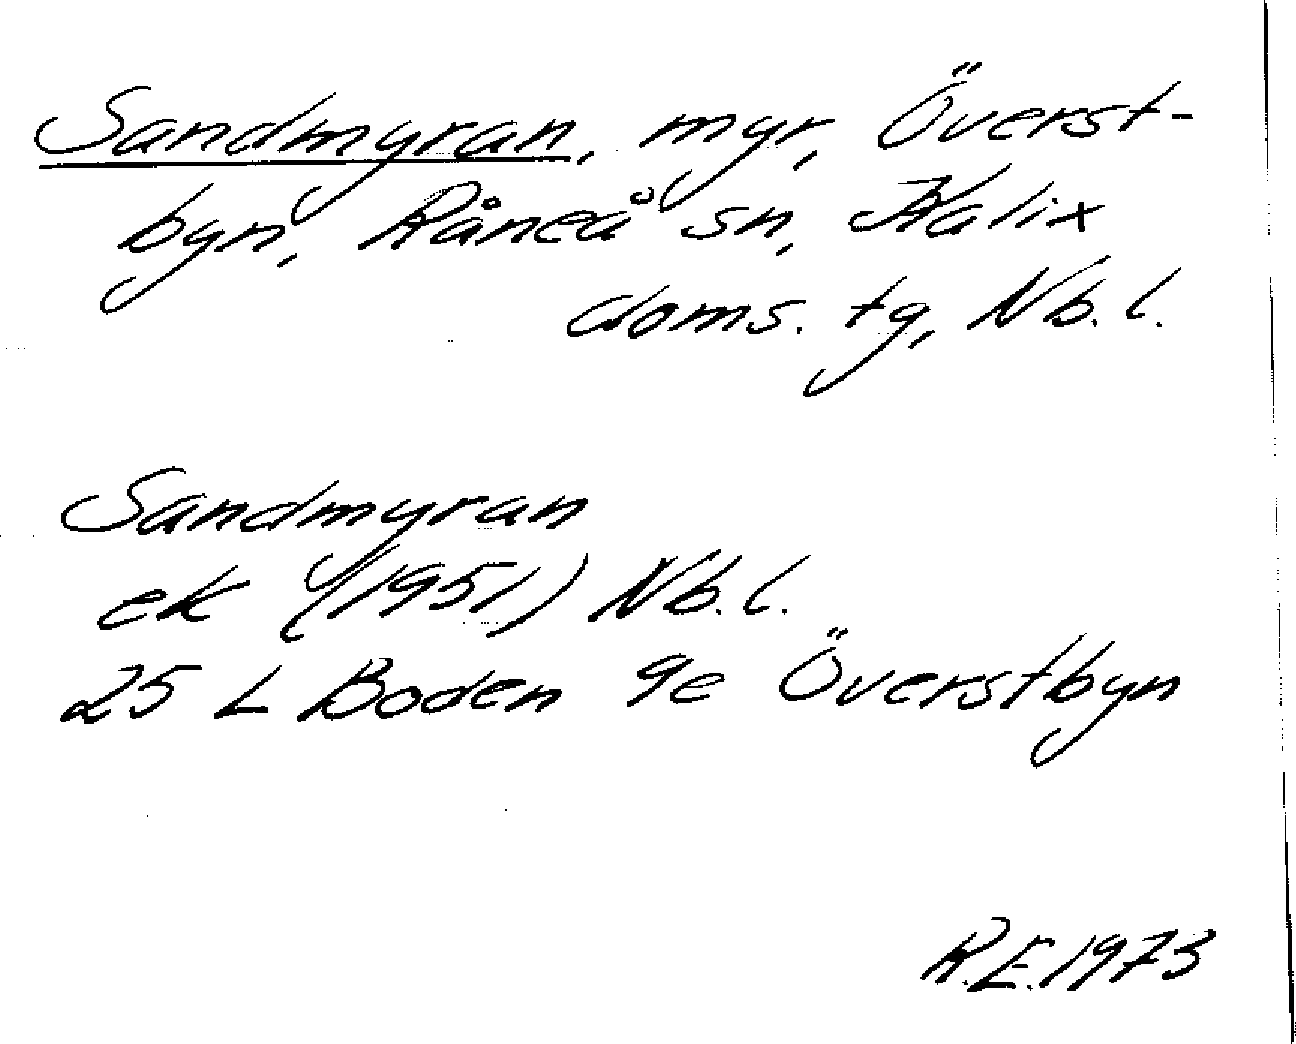 Sandmyran, myr, Överst-
byn, Råneå sn, Kalix
doms. tg, Nb. l.
Sandmyran
ek (1951) Nb. l.
25 L Boden 9e Överstbyn
R.E. 1973